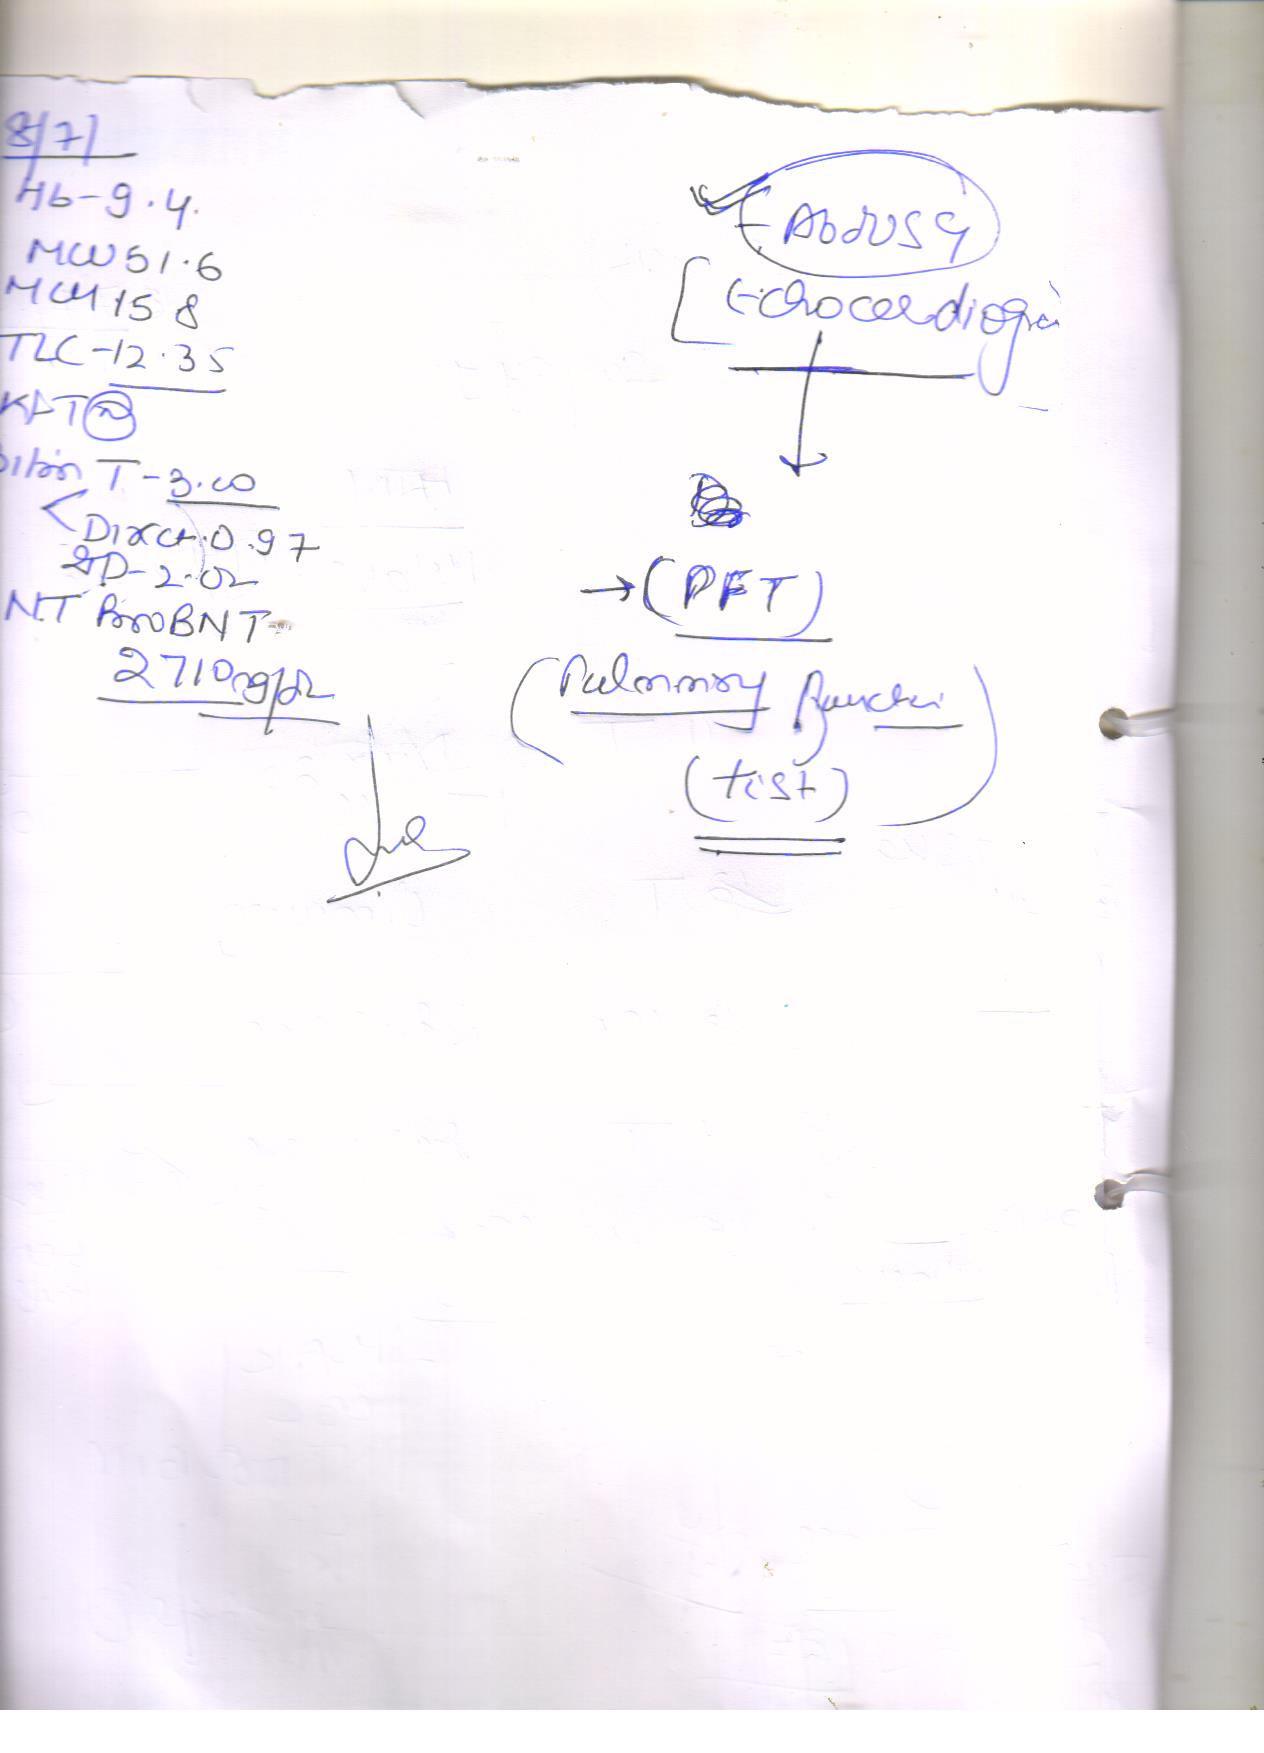 8/7/
Hb-9.4.
MCV 51.6
MCH 15.8
TLC-12.35
KFT (N)
T-3.00
Direct.0.97
ID-2.02
NT ProBNT-
2710 pg/
- Abd USG
Echocardiogra
→ (PFT)
(Pulmonary function
(test)